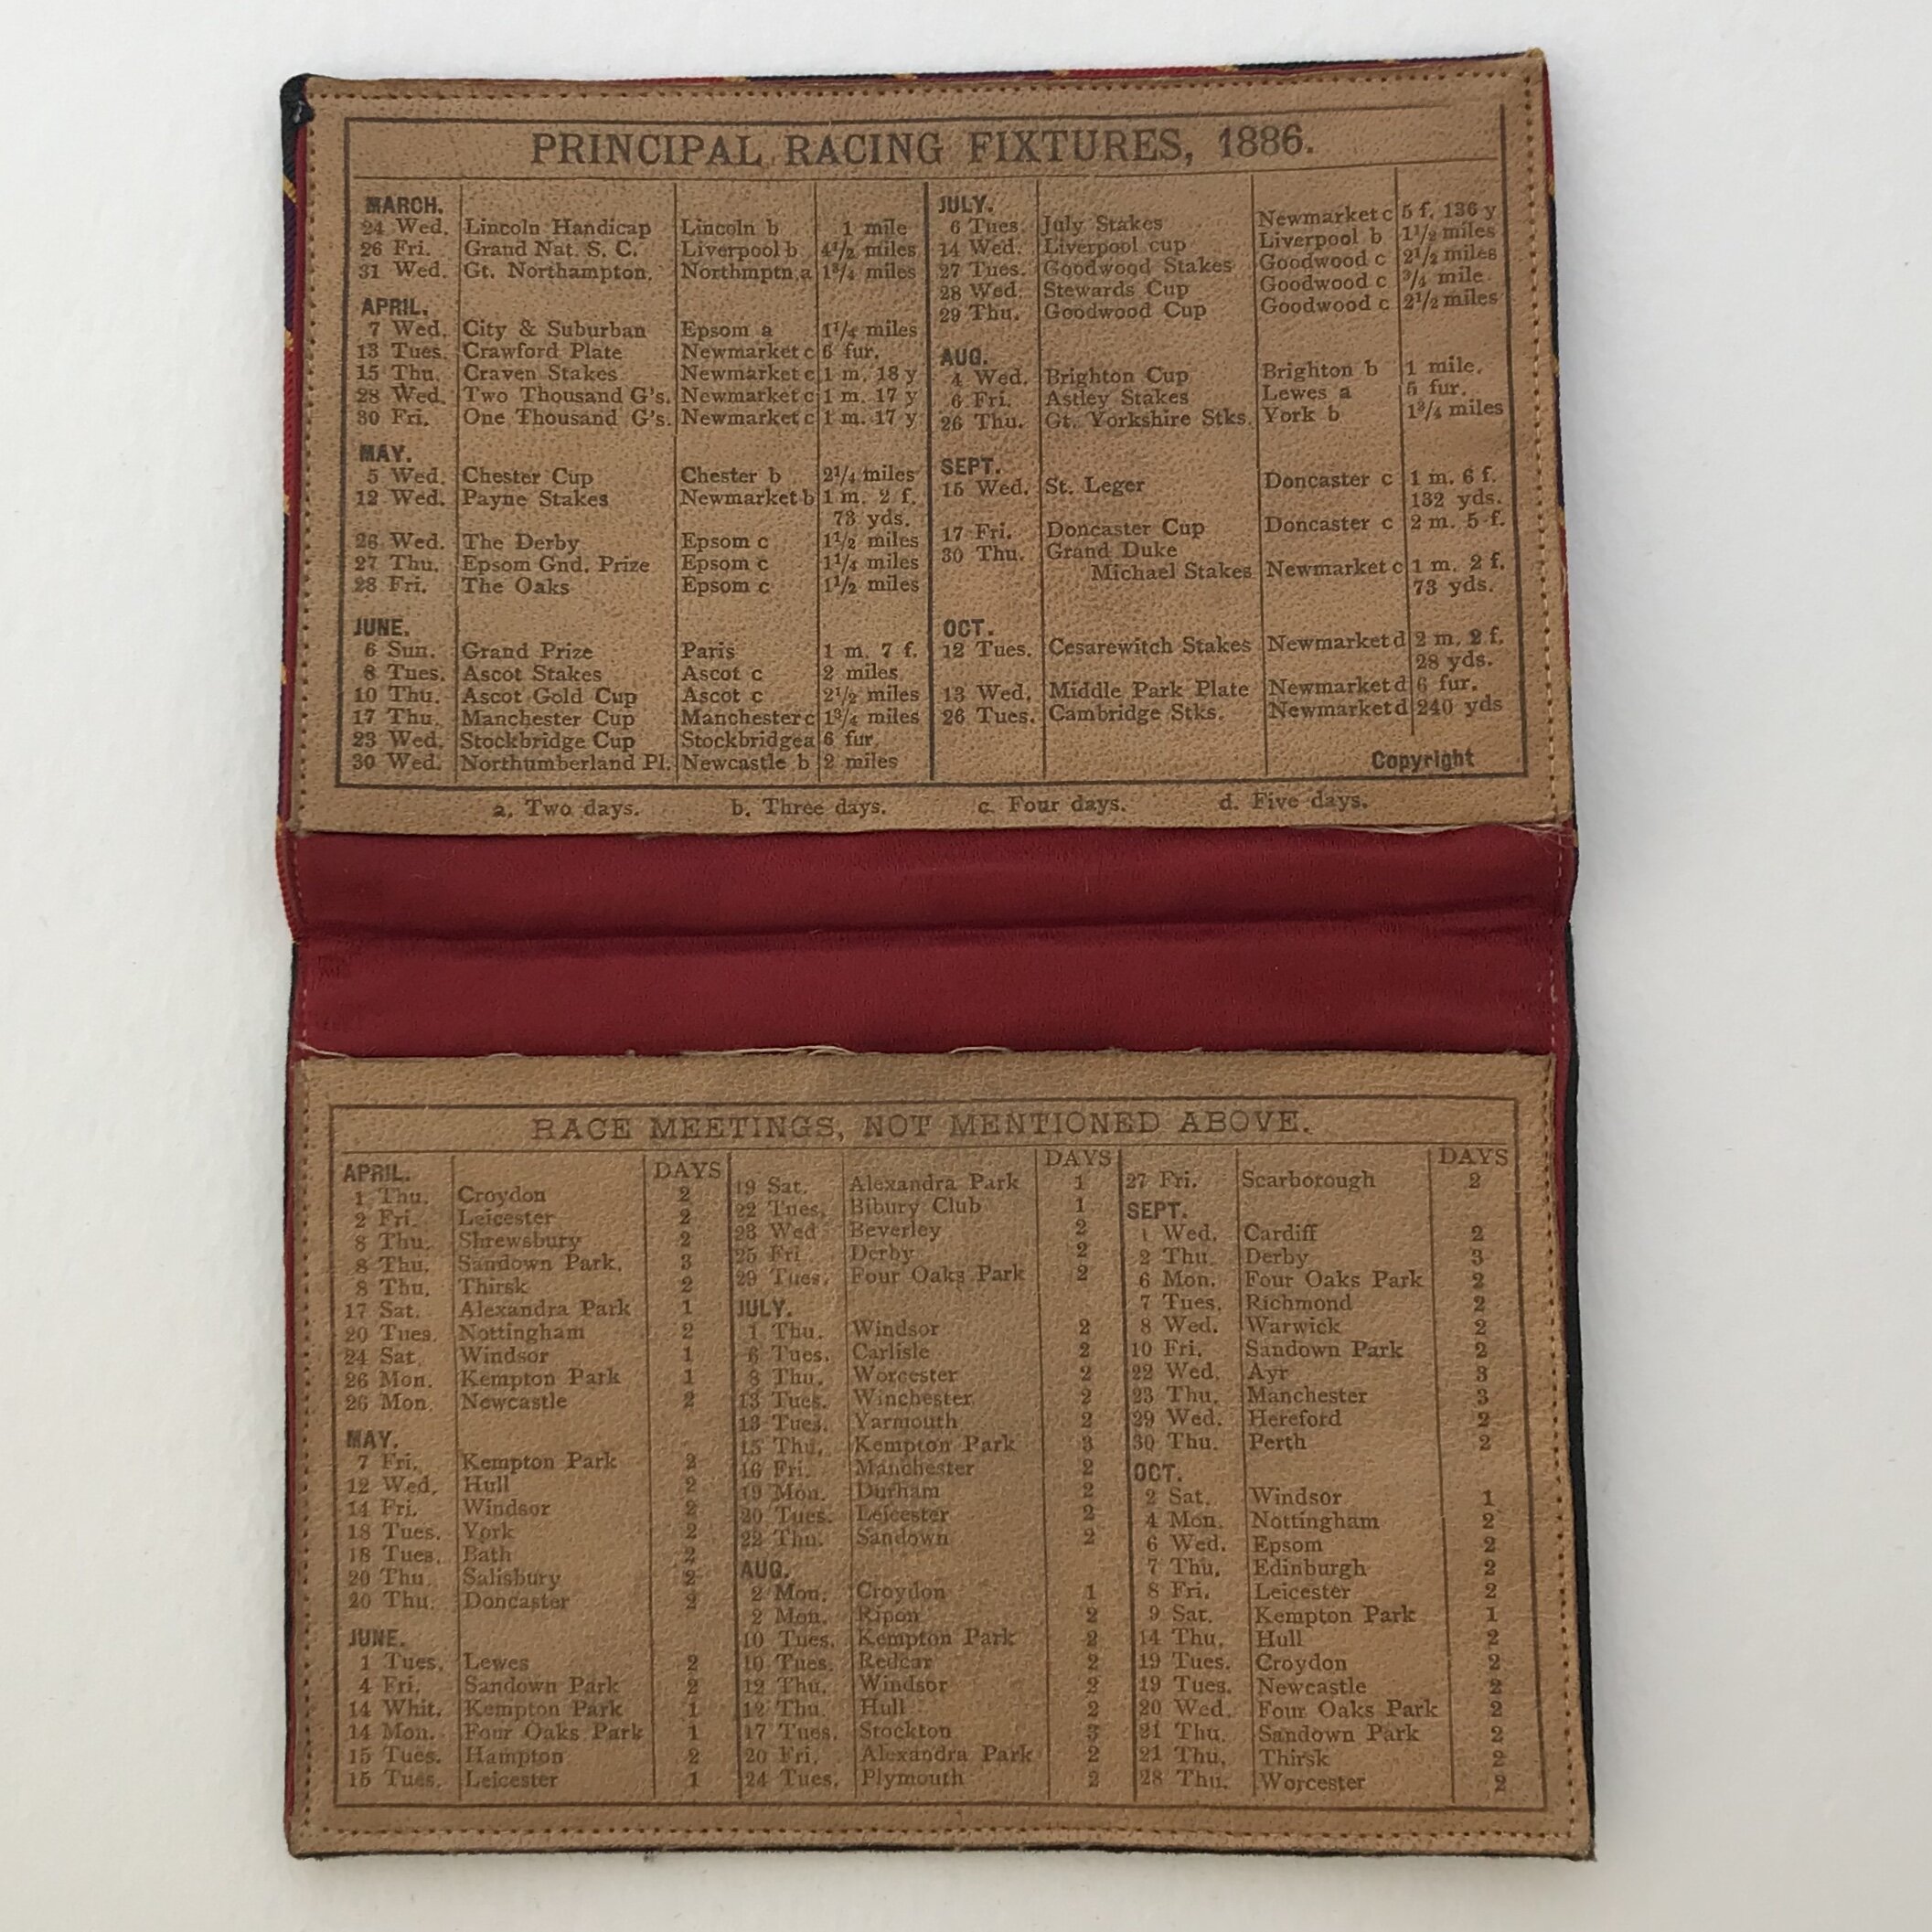 PRINCIPAL RACING FIXTURES, 1886.
MARCH.
24 Wed. Lincoln Handicap Lincoln b 1 mile
26 Fri. Grand Nat. S. C. Liverpool b 4½ miles
31 Wed. Gt. Northampton. Northmptn. a 1¾ miles
APRIL.
7 Wed. City & Suburban Epsom a 1¼ miles
13 Tues. Crawford Plate Newmarket c 6 fur.
15 Thu. Craven Stakes Newmarket c 1 m. 18 y
28 Wed. Two Thousand G's. Newmarket c 1 m. 17 y
30 Fri. One Thousand G's. Newmarket c 1 m. 17 y
MAY.
5 Wed. Chester Cup Chester b 2¼ miles
12 Wed. Payne Stakes Newmarket b 1 m. 2 f.
73 yds.
26 Wed. The Derby Epsom c 1½ miles
27 Thu. Epsom Gnd. Prize Epsom c 1¼ miles
28 Fri. The Oaks Epsom c 1½ miles
JUNE.
6 Sun. Grand Prize Paris 1 m. 7 f.
8 Tues. Ascot Stakes Ascot c 2 miles
10 Thu. Ascot Gold Cup Ascot c 2½ miles
17 Thu. Manchester Cup Manchester c 1¾ miles
23 Wed. Stockbridge Cup Stockbridge a 6 fur.
30 Wed. Northumberland Pl. Newcastle b 2 miles
JULY.
6 Tues. July Stakes Newmarket c 5 f. 136 y
14 Wed. Liverpool cup Liverpool b 1½ miles
27 Tues. Goodwood Stakes Goodwood c 2½ miles
28 Wed. Stewards Cup Goodwood c ¾ mile
29 Thu. Goodwood Cup Goodwood c 2½ miles
AUG.
4 Wed. Brighton Cup Brighton b 1 mile.
6 Fri. Astley Stakes Lewes a 5 fur.
26 Thu. Gt. Yorkshire Stks. York b 1¾ miles
SEPT.
15 Wed. St. Leger Doncaster c 1 m. 6 f.
132 yds.
17 Fri. Doncaster Cup Doncaster c 2 m. 5 f.
30 Thu. Grand Duke
Michael Stakes Newmarket c 1 m. 2 f.
73 yds.
OCT.
12 Tues. Cesarewitch Stakes Newmarket d 2 m. 2 f.
28 yds.
13 Wed. Middle Park Plate Newmarket d 6 fur.
26 Tues. Cambridge Stks. Newmarket d 240 yds
Copyright
a. Two days. b. Three days. c. Four days. d. Five days.
RACE MEETINGS, NOT MENTIONED ABOVE.
DAYS
APRIL.
1 Thu. Croydon 2
2 Fri. Leicester 2
8 Thu. Shrewsbury 2
8 Thu. Sandown Park. 3
8 Thu. Thirsk 2
17 Sat. Alexandra Park 1
20 Tues. Nottingham 2
24 Sat. Windsor 1
26 Mon. Kempton Park 1
26 Mon. Newcastle 2
MAY.
7 Fri. Kempton Park 2
12 Wed. Hull 2
14 Fri. Windsor 2
18 Tues. York 2
18 Tues. Bath 2
20 Thu. Salisbury 2
20 Thu. Doncaster 2
JUNE.
1 Tues. Lewes 2
4 Fri. Sandown Park 2
14 Whit. Kempton Park 1
14 Mon. Four Oaks Park 1
15 Tues. Hampton 2
15 Tues. Leicester 1
DAYS
19 Sat. Alexandra Park 1
22 Tues. Bibury Club 1
23 Wed Beverley 2
25 Fri Derby 2
29 Tues. Four Oaks Park 2
JULY.
1 Thu. Windsor 2
6 Tues. Carlisle 2
8 Thu. Worcester 2
13 Tues. Winchester 2
13 Tues. Yarmouth 2
15 Thu. Kempton Park 3
16 Fri. Manchester 2
19 Mon. Durham 2
20 Tues. Leicester 2
22 Thu. Sandown 2
AUG.
2 Mon. Croydon 1
2 Mon. Ripon 2
10 Tues. Kempton Park 2
10 Tues. Redcar 2
12 Thu. Windsor 2
12 Thu. Hull 2
17 Tues. Stockton 3
20 Fri. Alexandra Park 2
24 Tues. Plymouth 2
DAYS
27 Fri. Scarborough 2
SEPT.
1 Wed. Cardiff 2
2 Thu Derby 3
6 Mon. Four Oaks Park 2
7 Tues. Richmond 2
8 Wed. Warwick 2
10 Fri. Sandown Park 2
22 Wed. Ayr 3
23 Thu. Manchester 3
29 Wed. Hereford 2
30 Thu. Perth 2
OCT.
2 Sat. Windsor 1
4 Mon. Nottingham 2
6 Wed. Epsom 2
7 Thu. Edinburgh 2
8 Fri. Leicester 2
9 Sat. Kempton Park 1
14 Thu. Hull 2
19 Tues. Croydon 2
19 Tues. Newcastle 2
20 Wed. Four Oaks Park 2
21 Thu. Sandown Park 2
21 Thu. Thirsk 2
28 Thu. Worcester 2